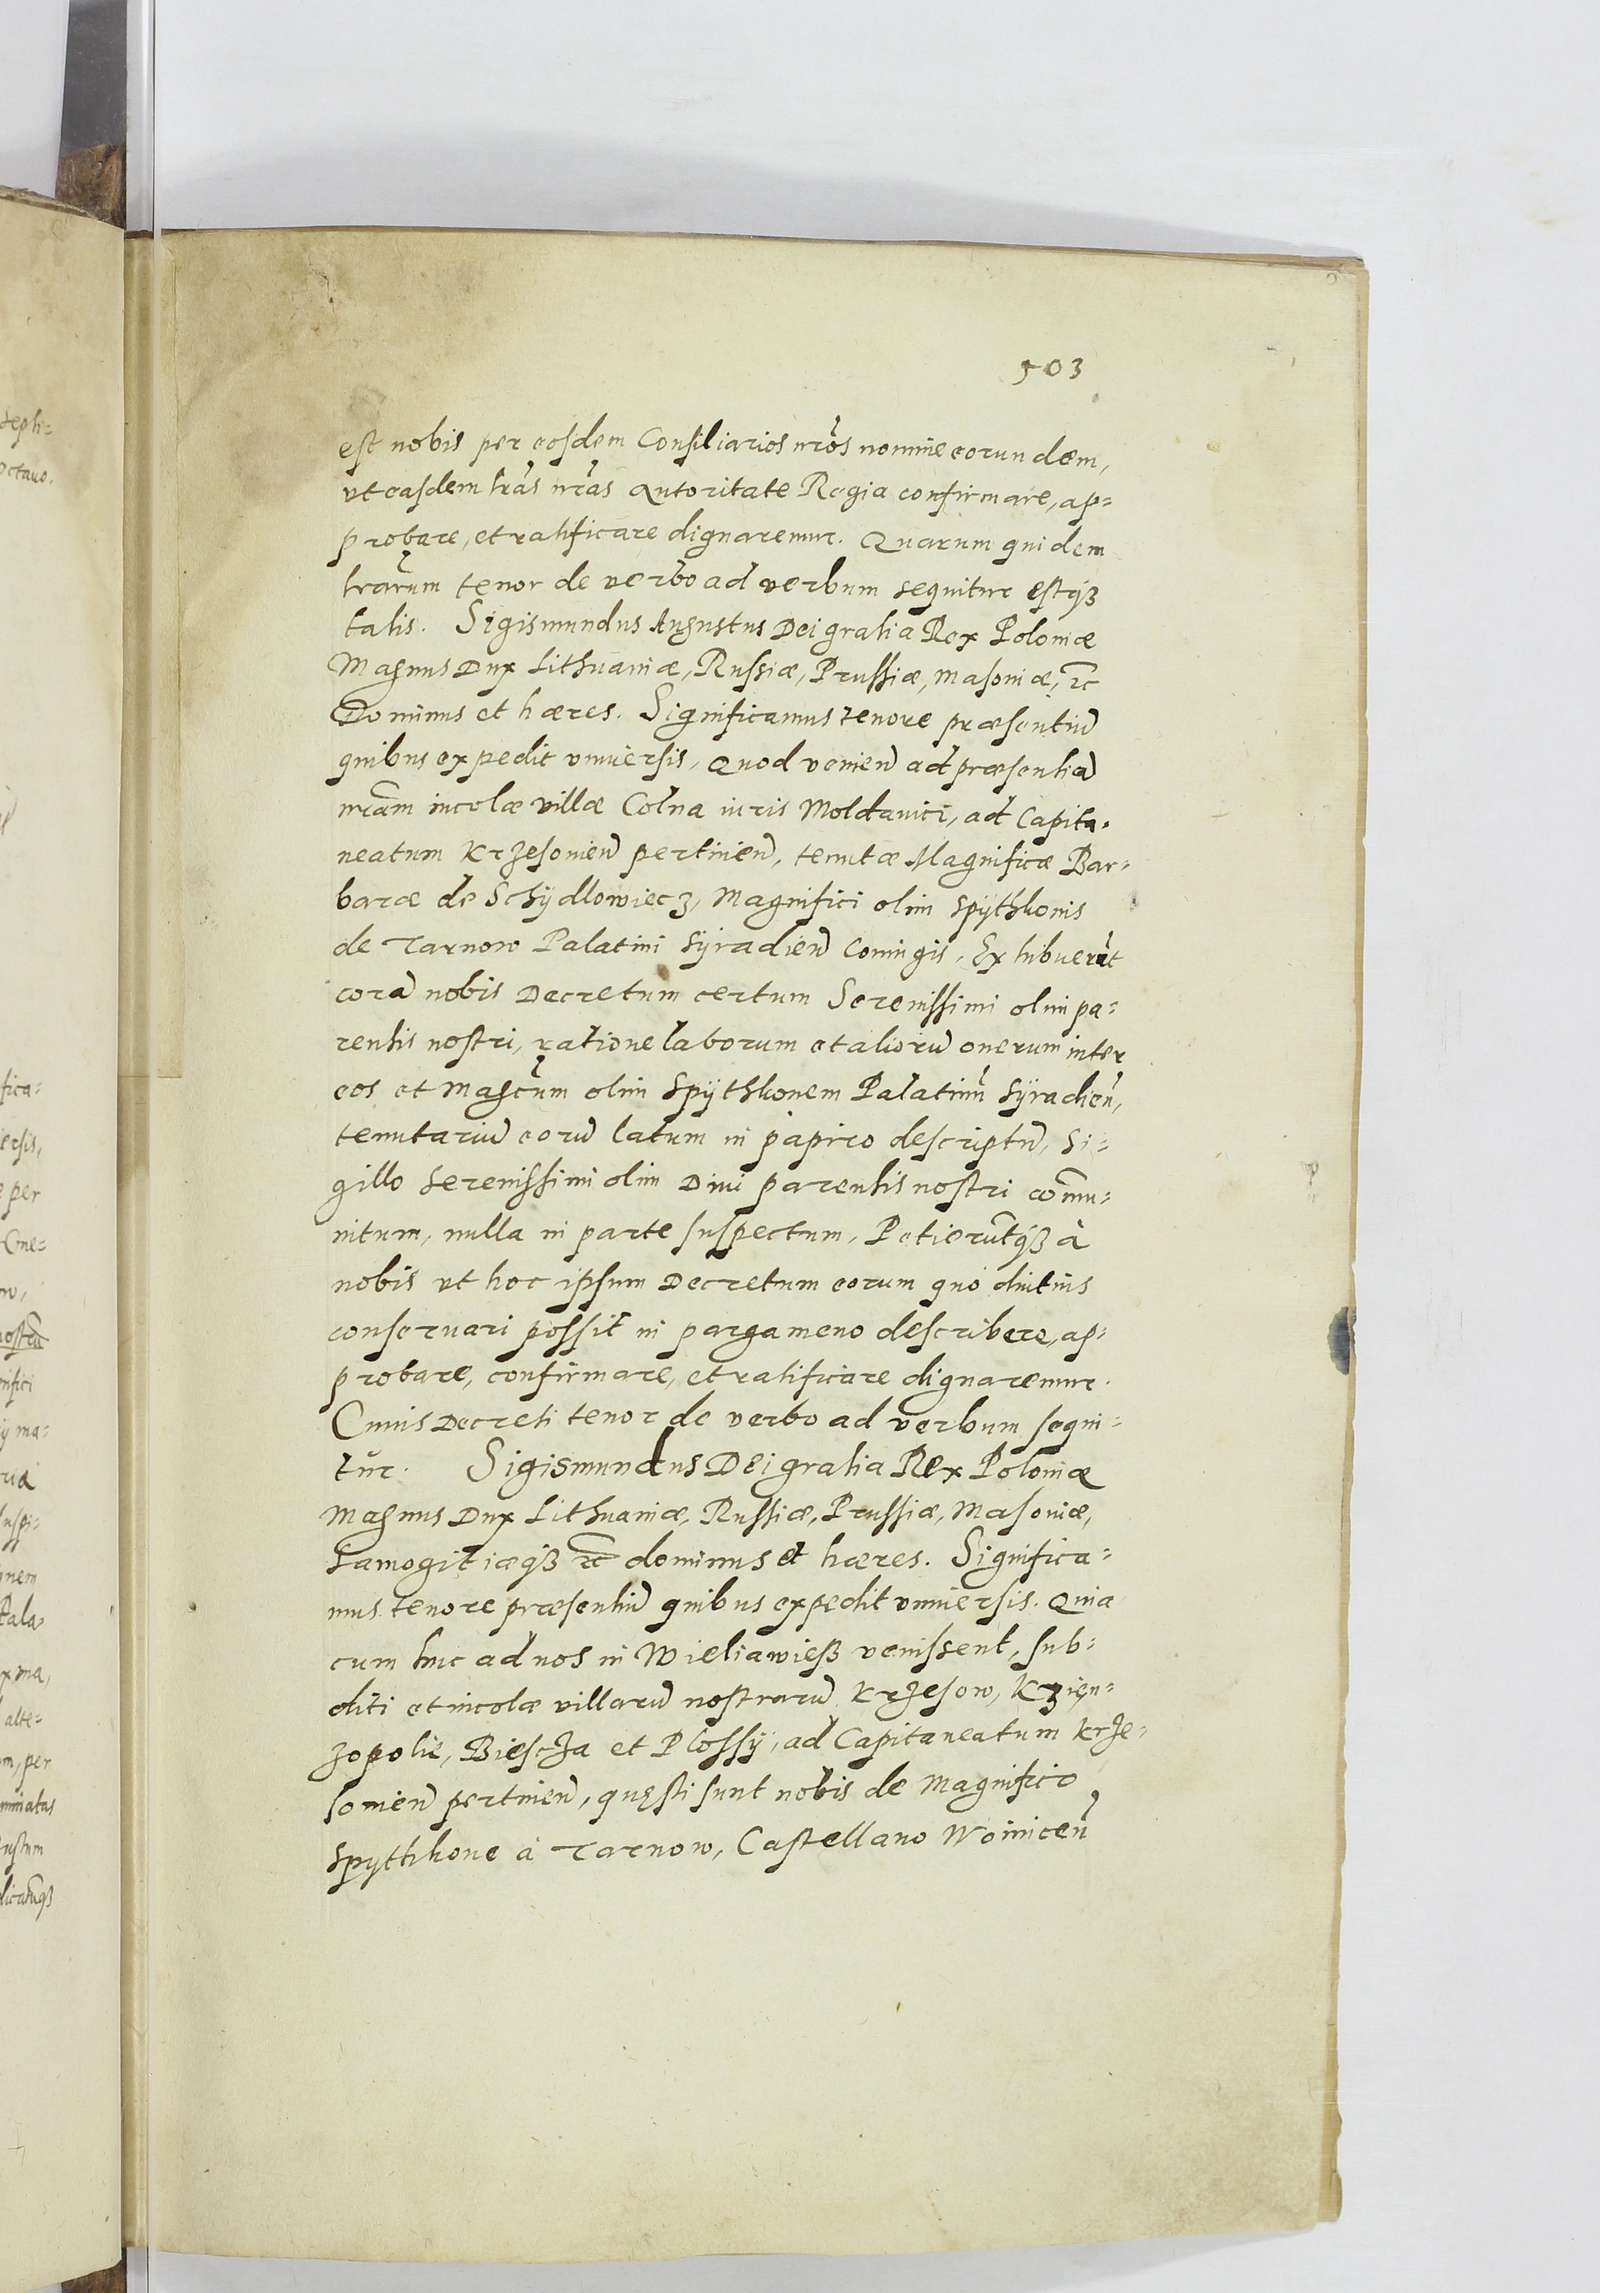 503
est nobis per eosdem Consiliarios nr̃os nomine eorundem,
vt easdem lr̃as nr̃as autoritate Regia confirmare, ap=
probare, et ratificare dignaremur. Quarum quidem
lrarum tenor de verbo ad verbum sequitur estq₃
talis. Sigismundus Augustus Dei gratia Rex Poloniæ
Magnus Dux Lithuaniæ, Russiæ, Prussiæ, Masoviæ, ꝛc
Dominus et hæres. Significamus tenore præsentiū
quibus expedit vniuersis, Quod venien̄ ad præsentiā
nr̃am incolæ villæ Colna iuris Moldauici, ad Capita=
neatum Krzesouien̄ pertinen̄, tenutæ Magnificæ Bar=
baræ de Schÿdlowiecz, Magnifici olim Spÿthkonis
de Tarnow Palatini Sÿradien̄ Coniugis, Exhibuerūt
corā nobis Decretum certum Serenissimi olim pa=
rentis nostri, ratione laborum et aliorū onerum inter
eos et Magcum olim Spÿthkonem Palatinū Sÿradien̄,
tenutariū eorū latum in papiro descriptū, Si=
gillo Serenissimi olim Diui parentis nostri com̄u=
nitum, nulla in parte suspectum, Petierūtq₃ à
nobis vt hoc ipsum Decretum eorum quò diutius
conseruari possit in pargameno describere, ap=
probare, confirmare, et ratificare dignaremur.
Cuius Decreti tenor de verbo ad verbum sequi=
tur. Sigismundus Dei gratia Rex Poloniæ
Magnus Dux Lithuaniæ, Russiæ, Prussiæ, Masouiæ,
Samogitiæq₃ ꝛc dominus et hæres. Significa=
mus tenore præsentiū quibus expedit vniuersis. Quia
cum huc ad nos in Wieliawieß venissent, sub=
diti et incolæ villarū nostrarū Krzesow, Kzien=
zopolie, Biescza et Plossÿ, ad Capitaneatum Krze=
souien̄ pertinen̄, quęsti sunt nobis de Magnifico
Spytthkone à Tarnow, Castellano Woinicen̄